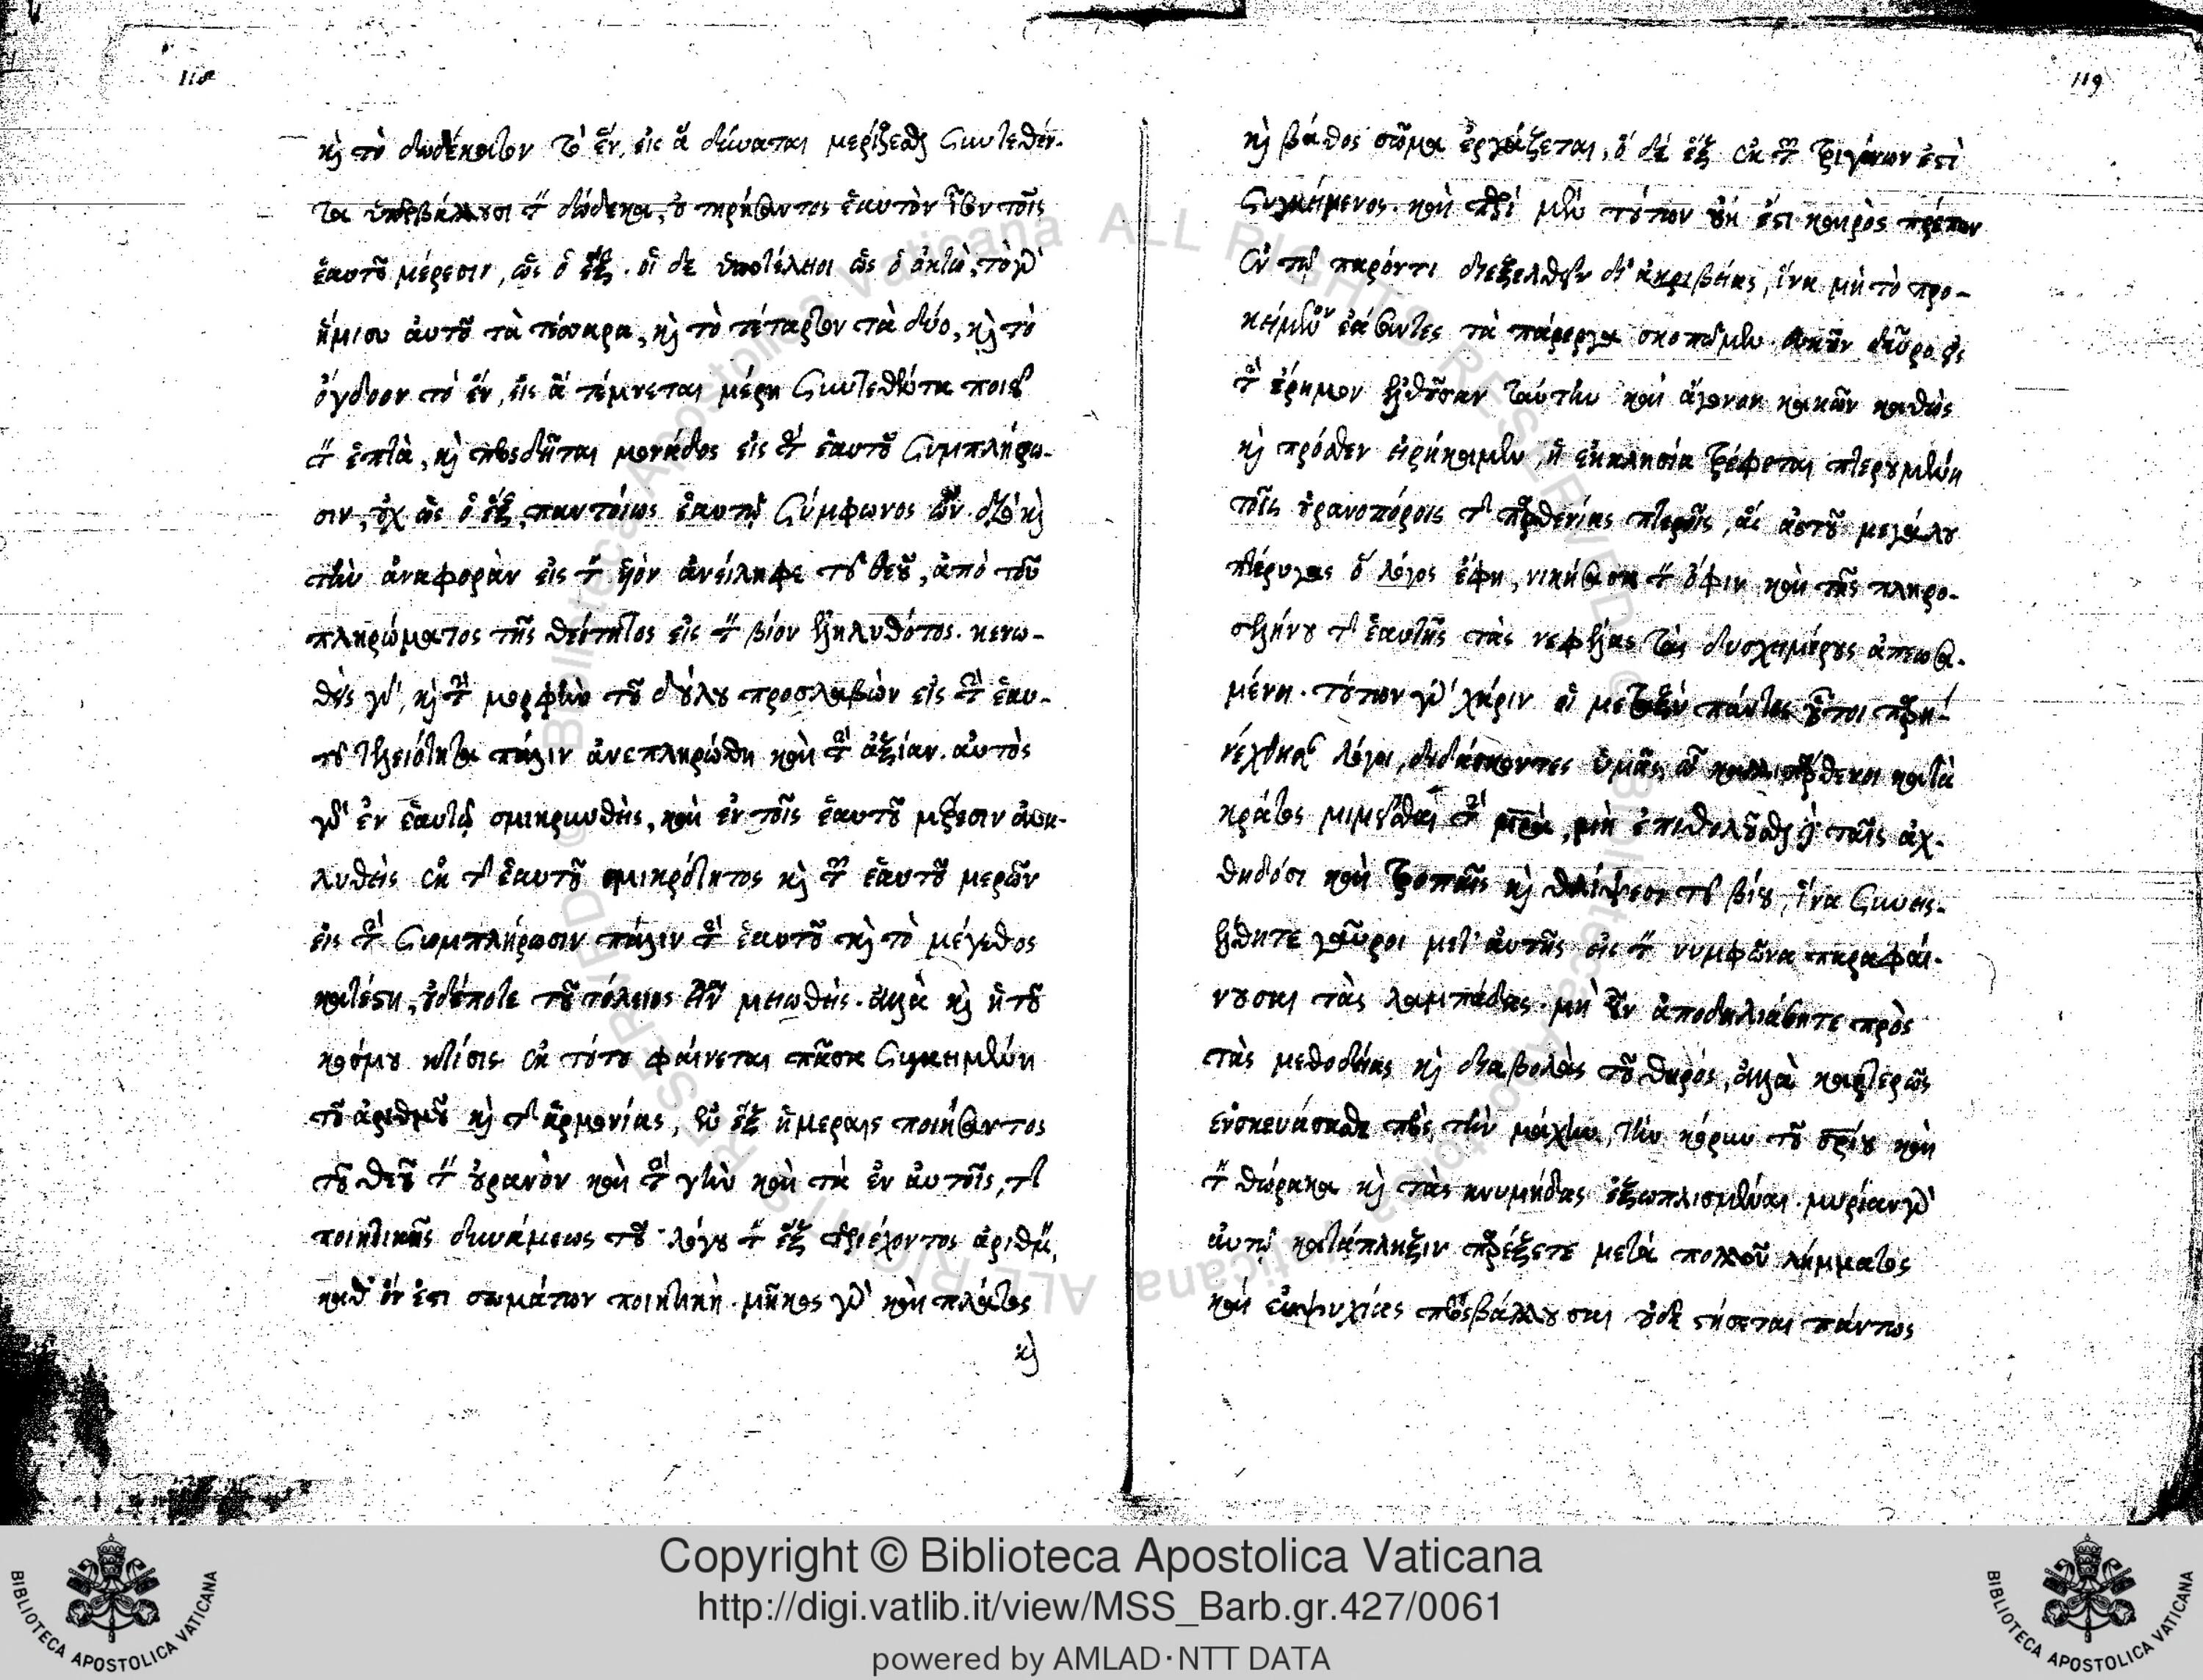 118
καὶ τὸ δωδέκατον τὸ ἓν, εἰς ἃ δύναται μερίζεσθαι συντεθέν-
τα ὑπερβάλλουσι τὸν δώδεκα, οὐ τηρήσαντος ἑαυτὸν ἶσον τοῖς
ἑαυτοῦ μέρεσιν, ὡς ὁ ἕξ. οἱ δὲ ὑποτέλειοι ὡς ὁ ὀκτὼ, τὸ γὰρ
ἥμισυ αὐτοῦ τὰ τέσσαρα, καὶ τὸ τέταρτον τὰ δύο, καὶ τὸ
ὄγδοον τὸ ἓν, εἰς ἃ τέμνεται μέρη συντεθέντα ποιεῖ
τὸν ἑπτὰ, καὶ προσδεῖται μονάδος εἰς τὴν ἑαυτοῦ συμπλήρω-
σιν, οὐχ ὡς ὁ ἓξ, παντοίως ἑαυτῷ σύμφωνος ὤν. διὸ καὶ
τὴν ἀναφορὰν εἰς τὸν υἱὸν ἀνείληφε τοῦ θεοῦ, ἀπὸ τοῦ
πληρώματος τῆς θεότητος εἰς τὸν βίον ἐληλυθότος. κενω-
θεὶς γὰρ, καὶ τὴν μορφὴν τοῦ δούλου προσλαβὼν εἰς τὴν ἑαυ-
τοῦ τελειότητα πάλιν ἀνεπληρώθη καὶ τὴν ἀξίαν. αὐτὸς
γὰρ ἐν ἑαυτῷ σμικρυνθεὶς, καὶ ἐν τοῖς ἑαυτοῦ μέρεσιν ἀνα-
λυθεὶς ἐκ τῆς ἑαυτοῦ σμικρότητος καὶ τῶν ἑαυτοῦ μερῶν
εἰς τὴν συμπλήρωσιν πάλιν τὴν ἑαυτοῦ καὶ τὸ μέγεθος
κατέστη, οὐδέποτε τοῦ τέλειος εἶναι μειωθείς. ἀλλὰ καὶ ἡ τοῦ
κόσμου κτίσις ἐκ τούτου φαίνεται πᾶσα συγκειμένη
τοῦ ἀριθμοῦ καὶ τῆς ἁρμονίας, ἐν ἓξ ἡμέραις ποιήσαντος
τοῦ θεοῦ τὸν οὐρανὸν καὶ τὴν γῆν καὶ τὰ ἐν αὐτοῖς, τῆς
ποιητικῆς δυνάμεως τοῦ λόγου τὸν ἓξ περιέχοντος ἀριθμὸν,
καθ' ὅν ἐστι σωμάτων ποιητική. μῆκος γὰρ καὶ πλάτος
καὶ
119
καὶ βάθος σῶμα ἐργάζεται, ὁ δὲ ἓξ ἐκ τῶν τριγώνων ἐστὶ
συγκείμενος. καὶ περὶ μὲν τούτων οὐκ ἔστι καιρὸς πρέπων
ἐν τῷ παρόντι διεξελθεῖν δι' ἀκριβείας, ἵνα μὴ τὸ προ-
κείμενον ἐάσαντες τὰ πάρεργα σκοπῶμεν. οὐκοῦν δεῦρο εἰς
τὴν ἔρημον ἐλθοῦσαν ταύτην καὶ ἄγονον κακῶν καθὼς
καὶ πρόσθεν εἰρήκαμεν, ἡ ἐκκλησία τρέφεται πτερουμένη
τοῖς οὐρανοπόροις τῆς παρθενίας πτεροῖς, ἃς ἀετοῦ μεγάλου
πτέρυγας ὁ λόγος ἔφη, νικήσασα τὸν ὄφιν καὶ τῆς πληρο-
σελήνου τῆς ἑαυτῆς τὰς νεφέλας τὰς δυσχειμέρους ἀπεωσα-
μένη. τούτων γὰρ χάριν οἱ μεταξὺ πάντες οὗτοι παρη-
νέχθησαν λόγοι, διδάσκοντες ὑμᾶς, ὦ καλλιπάρθενοι κατὰ
κράτος μιμεῖσθαι τὴν μητέρα, μὴ ἐπιθολοῦσθαι ταῖς ἀχ-
θηδόσι καὶ τροπαῖς καὶ θλίψεσι τοῦ βίου, ἵνα συνεισ-
έλθητε γαῦροι μετ' αὐτῆς εἰς τὸν νυμφῶνα παραφαί-
νουσαι τὰς λαμπάδας. μὴ οὖν ἀποδειλιάσητε πρὸς
τὰς μεθοδείας καὶ διαβολὰς τοῦ θηρός, ἀλλὰ καρτερῶς
ἐνσκευάσασθε πρὸς τὴν μάχην, τὴν κόρυν τοῦ σρίου καὶ
τὸν θώρακα καὶ τὰς κνημῖδας ἐξωπλισμέναι. μυρίαν γὰρ
αὐτῷ κατάπληξιν παρέξετε μετὰ πολλοῦ λήμματος
καὶ εὐψυχίας προσβάλλουσαι οὐδὲ στήσεται πάντως
Copyright © Biblioteca Apostolica Vaticana
http://digi.vatlib.it/view/MSS_Barb.gr.427/0061
powered by AMLAD·NTT DATA
BIBLIOTECA APOSTOLICA VATICANA
BIBLIOTECA APOSTOLICA VATICANA